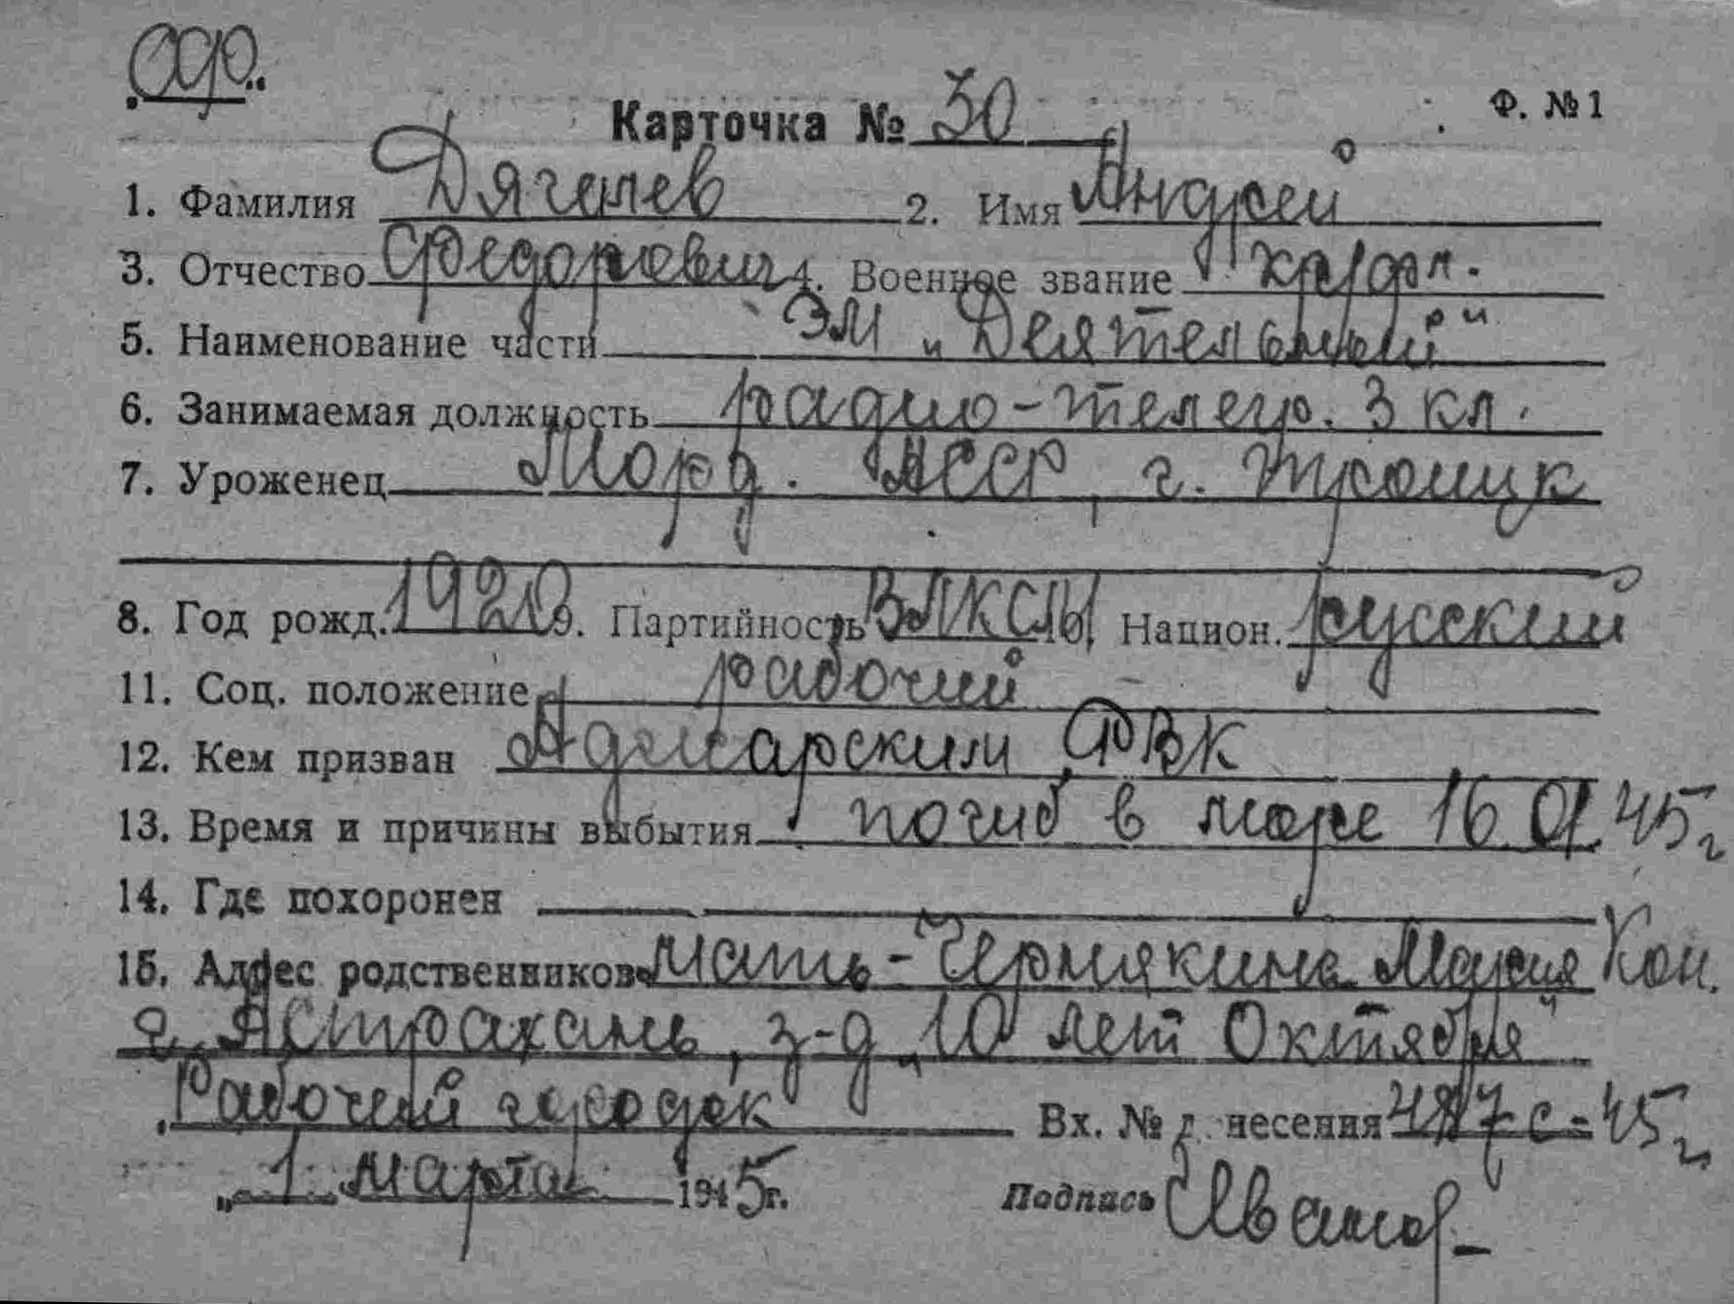 СФ.
Карточка № 30 Ф. № 1
1. Фамилия Дягилев 2. Имя Андрей
3. Отчество Федорович 4. Военное звание кр/фл.
5. Наименование части ЭМ „Деятельный"
6. Занимаемая должность радио-телегр. 3 кл.
7. Уроженец Морд. АССР, г. Троицк
8. Год рожд. 1920 9. Партийность ВЛКСМ 10. Национ. русский
11. Соц. положение рабочий
12. Кем призван Аджарским РВК
13. Время и причины выбытия погиб в море 16.01.45 г
14. Где похоронен
15. Адрес родственников мать - Чернякина Мария Кон.
г. Астрахань, з-д „10 лет Октября"
Рабочий городок Вх. № донесения с-45 г
„ 1 „ марта 1945 г. Подпись Иванов